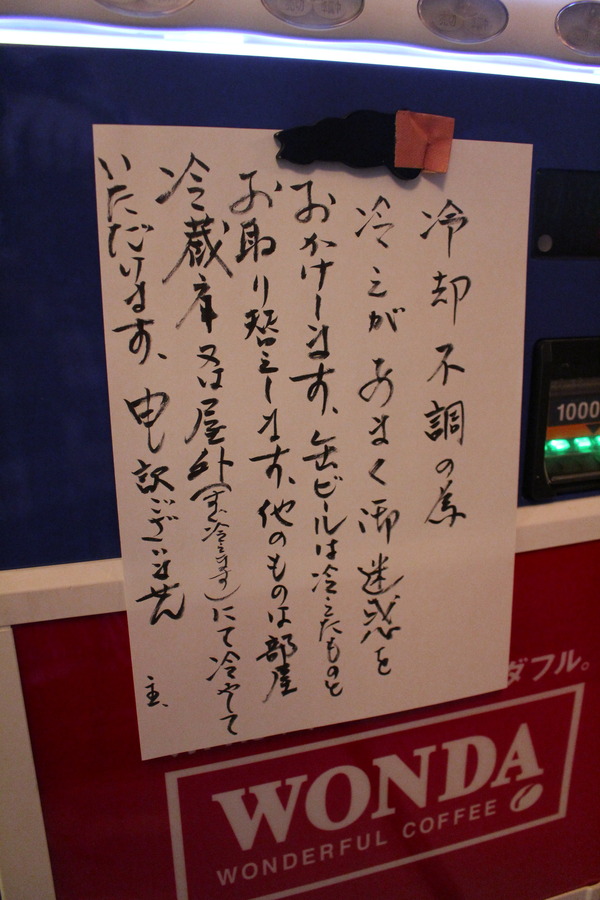 冷却不調の為
冷えがあまく御迷惑を
おかけします、缶ビールは冷えたものと
お取り替えします、他のものは部屋
冷蔵庫又は屋外(すぐ冷えます)にて冷やして
いただけます、申訳ございません
主、
1000
ダフル。
WONDA
WONDERFUL COFFEE